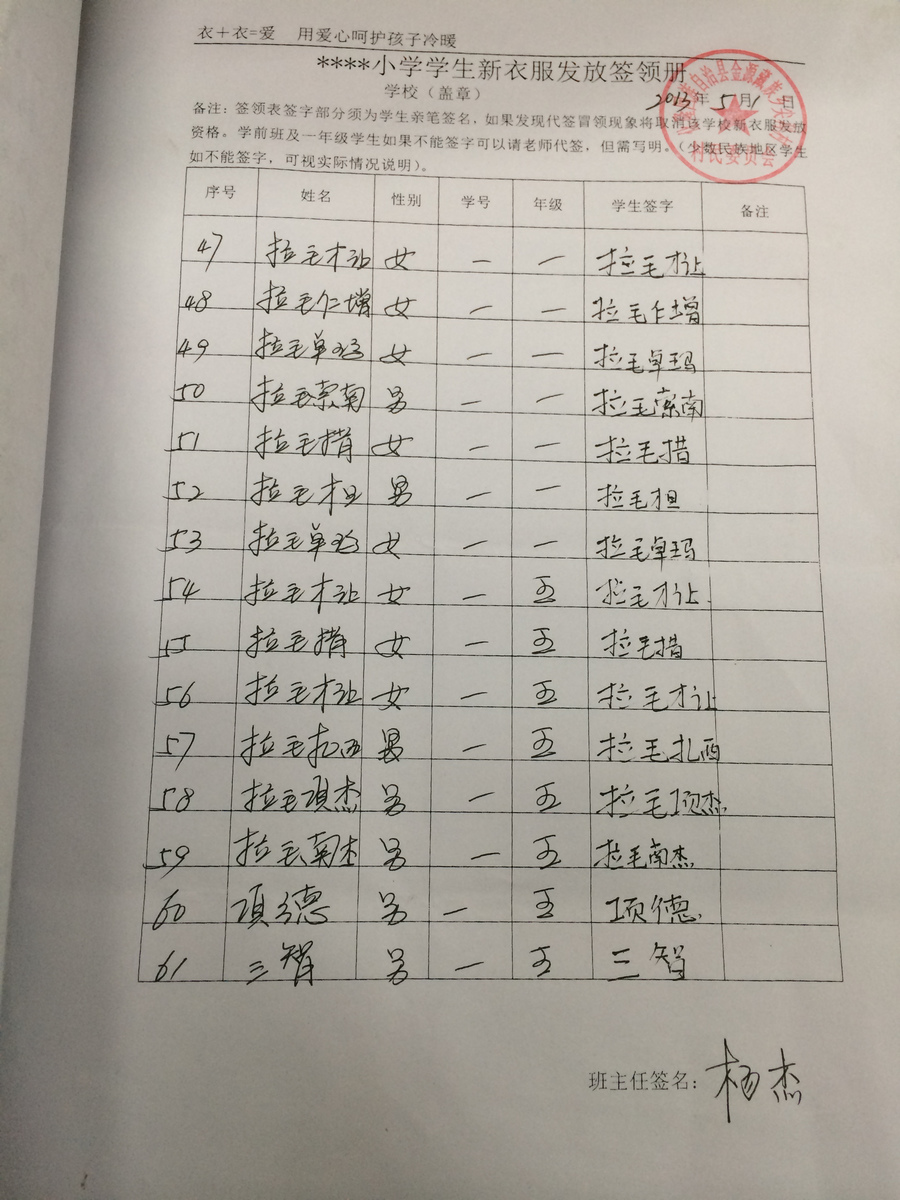 衣＋衣=爱 用爱心呵护孩子冷暖
****小学学生新衣服发放签领册
学校（盖章） 2013年 5月1日
备注：签领表签字部分须为学生亲笔签名，如果发现代签冒领现象将取消该学校新衣服发放
资格。学前班及一年级学生如果不能签字可以请老师代签，但需写明。（少数民族地区学生
如不能签字，可视实际情况说明）。
村民委员会
序号 姓名 性别 学号 年级 学生签字 备注
47 拉毛才让 女 一 一 拉毛才让
48 拉毛仁增 女 一 一 拉毛仁增
49 拉毛卓玛 女 一 一 拉毛卓玛
50 拉毛索南 男 一 一 拉毛索南
51 拉毛措 女 一 一 拉毛措
52 拉毛才旦 男 一 一 拉毛才旦
53 拉毛卓玛 女 一 一 拉毛卓玛
54 拉毛才让 女 一 五 拉毛才让
55 拉毛措 女 一 五 拉毛措
56 拉毛才让 女 一 五 拉毛才让
57 拉毛扎西 男 一 五 拉毛扎西
58 拉毛项杰 男 一 五 拉毛项杰
59 拉毛南杰 男 一 五 拉毛南杰
60 项德 男 一 五 项德
61 三智 男 一 五 三智
班主任签名：杨杰